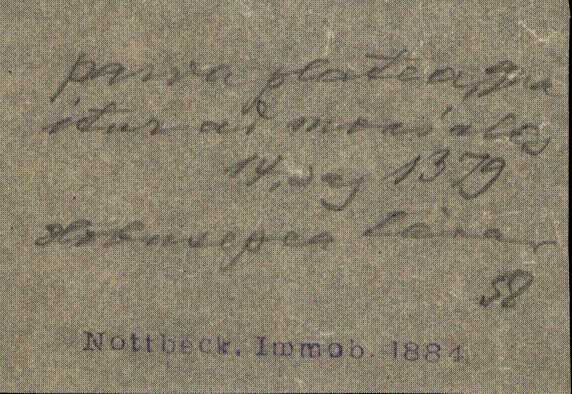 parva platea, qua
itur ad moniales
14. saj 1379
Hobusepea tänav
58
Nottbeck. Immob. 1884